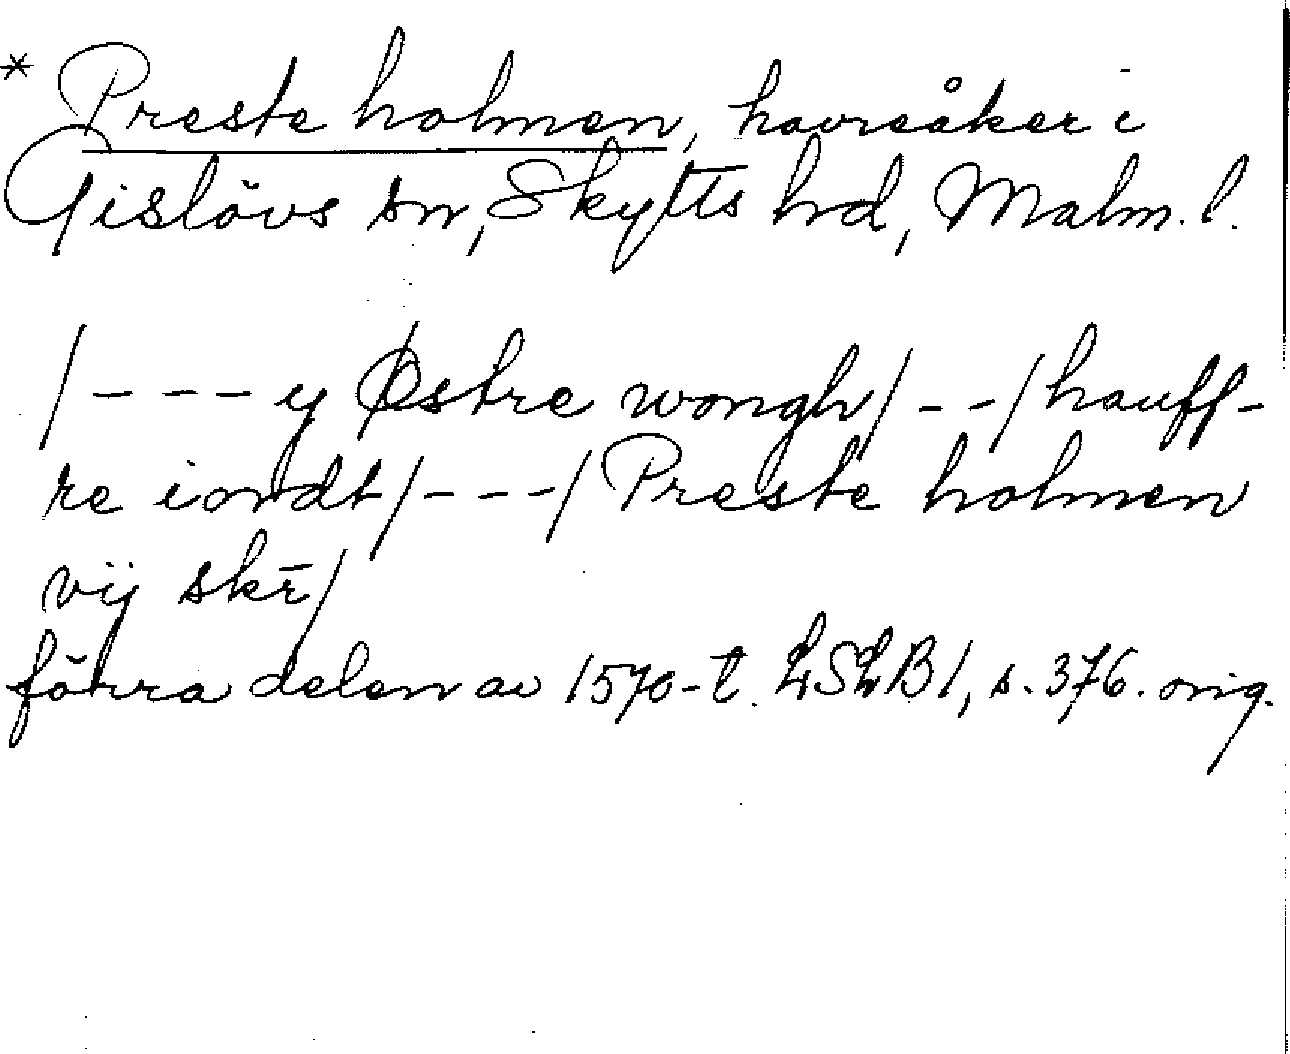 * Preste holmen, havreåker i
Gislövs sn, Skytts hrd, Malm. l.
/---y Østre wongh/--/hauff-
re iordt/---/Preste holmen
vij skr̄/
förra delen av 1570-t. LSLB1, s. 376. orig.